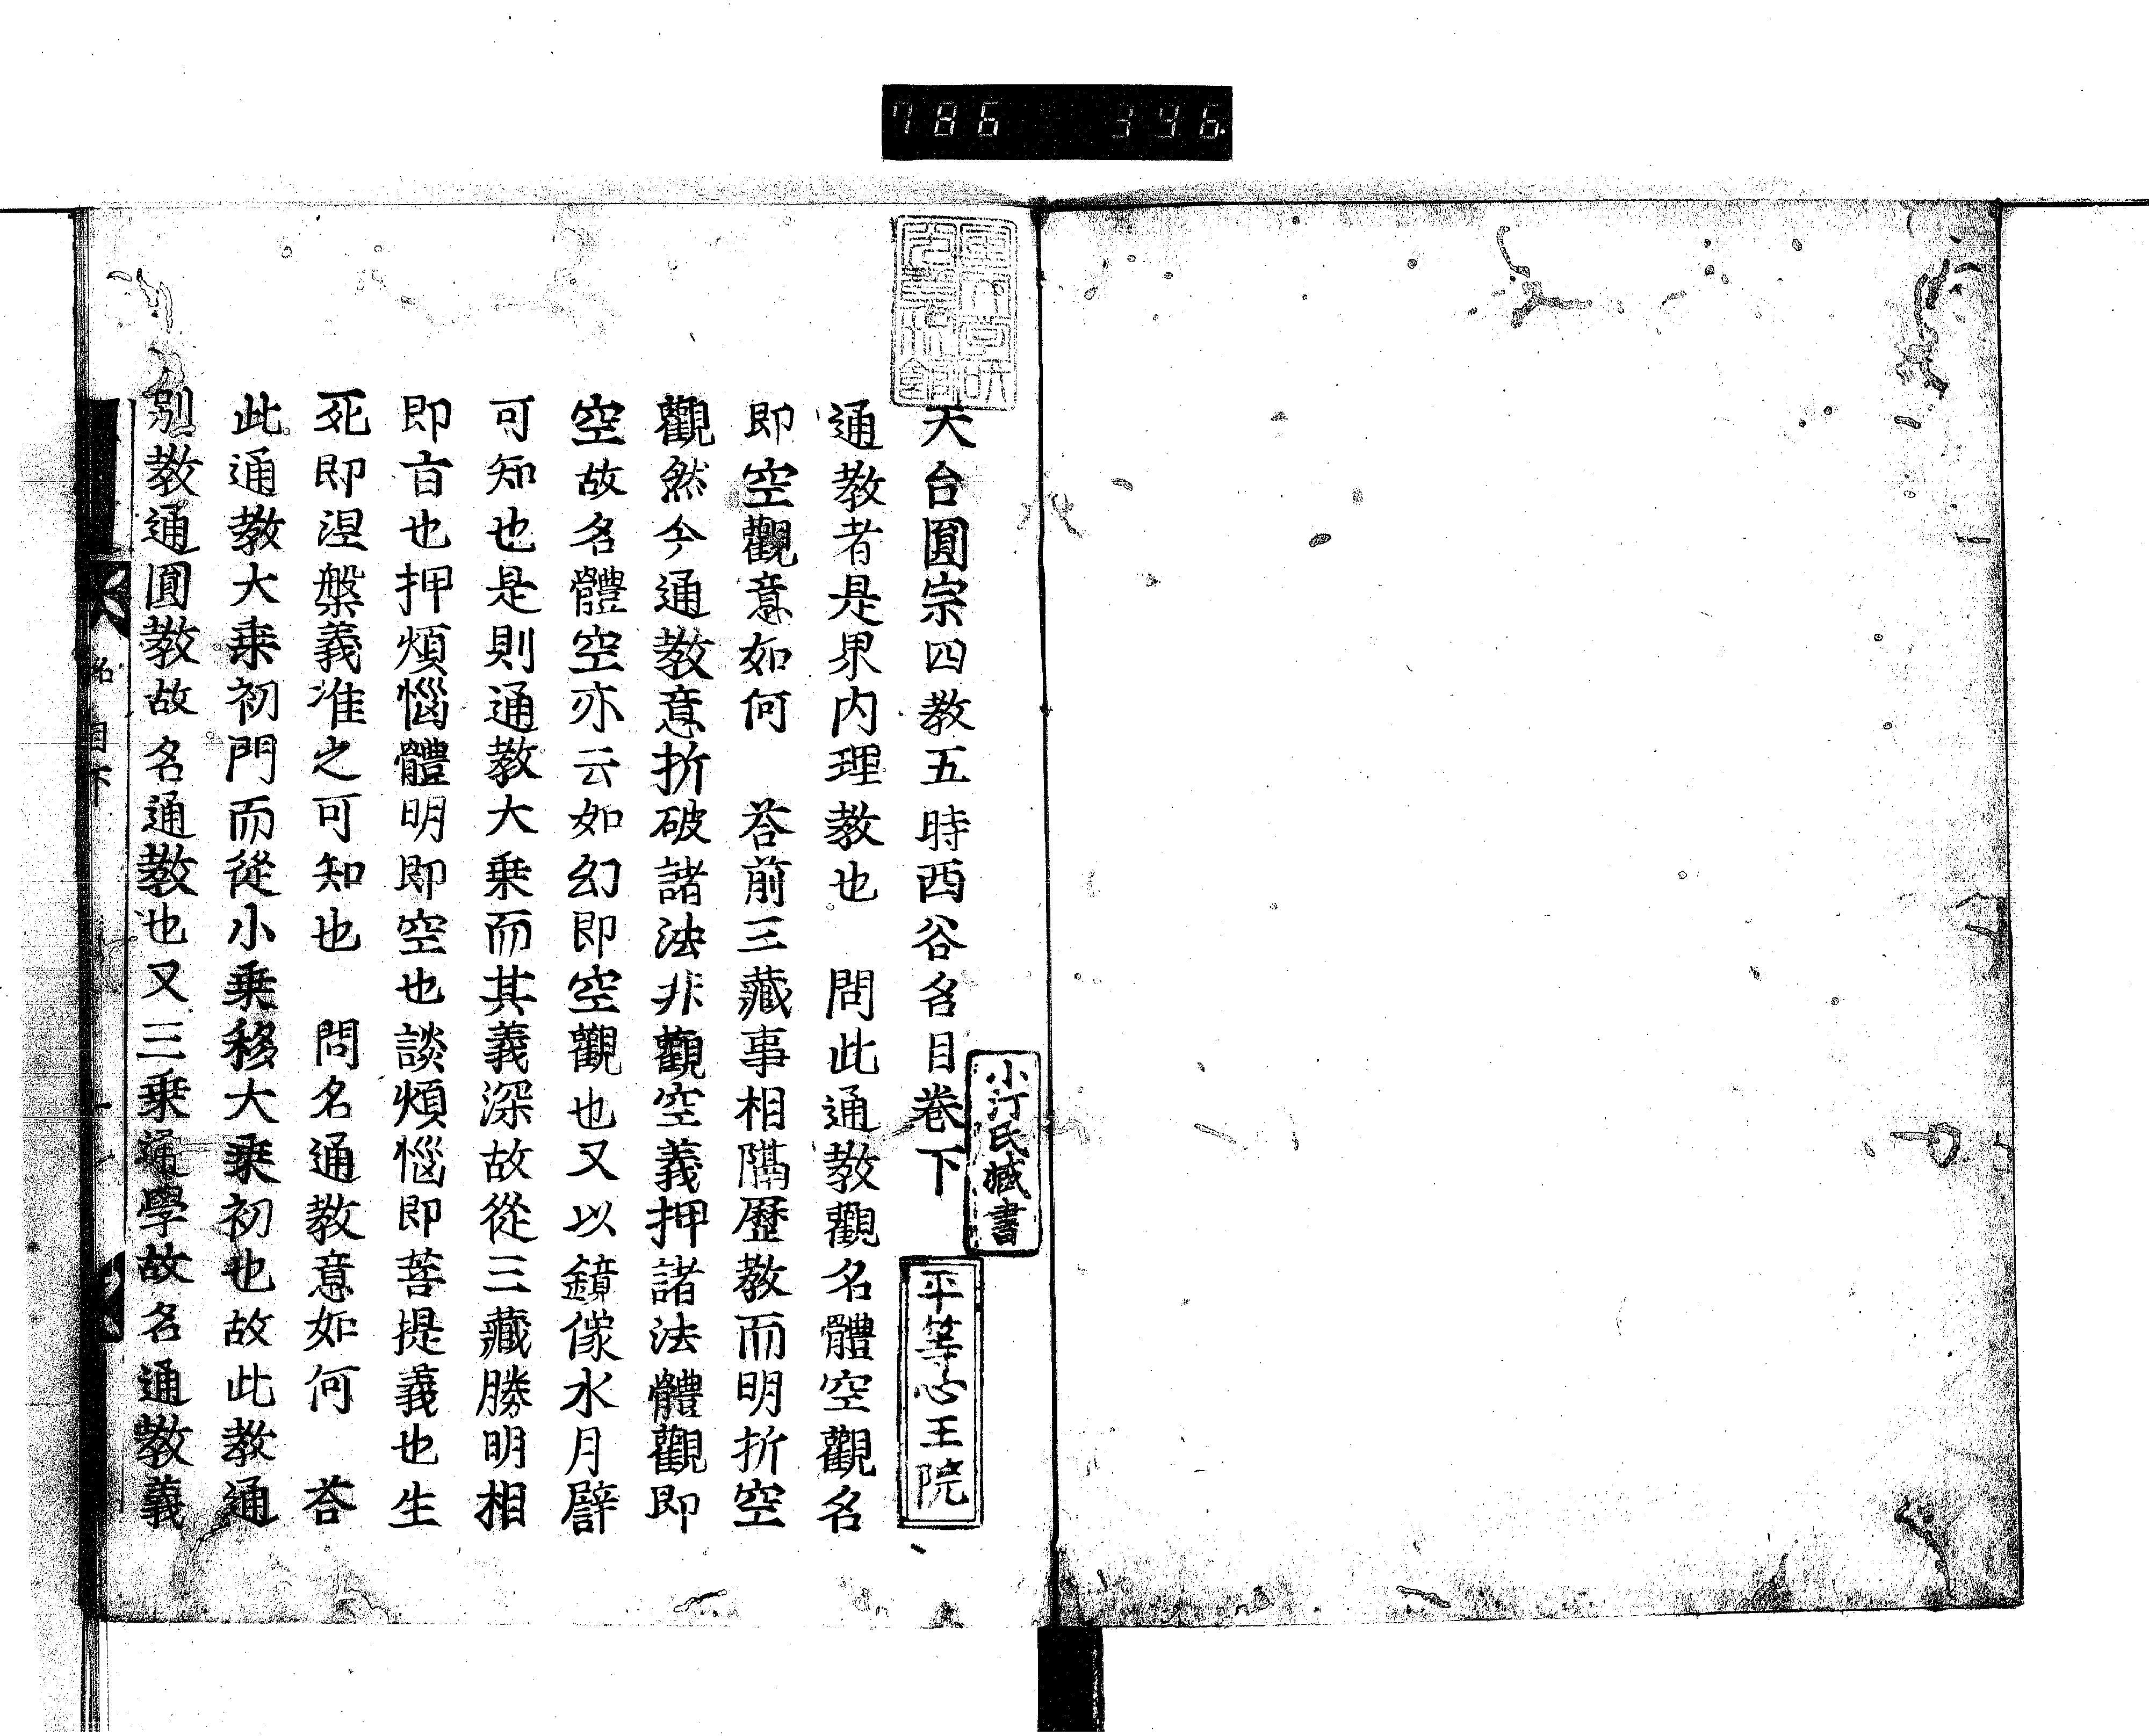 786 346.
天台圓宗四教五時西谷名目卷下
小汀氏藏書
平等心王院
通教者是界内理教也　問此通教觀名體空觀名
即空觀意如何　荅前三藏事相隔歷教而明折空
觀然今通教意折破諸法非觀空義押諸法體觀即
空故名體空亦云如幻即空觀也又以鏡像水月譬
可知也是則通教大乗而其義深故從三藏勝明相
即旨也押煩惱體明即空也談煩惱即菩提義也生
死即涅槃義准之可知也　問名通教意如何　荅
此通教大乗初門而從小乗移大乗初也故此教通
別教通圓教故名通教也又三乗通學故名通教義
目下